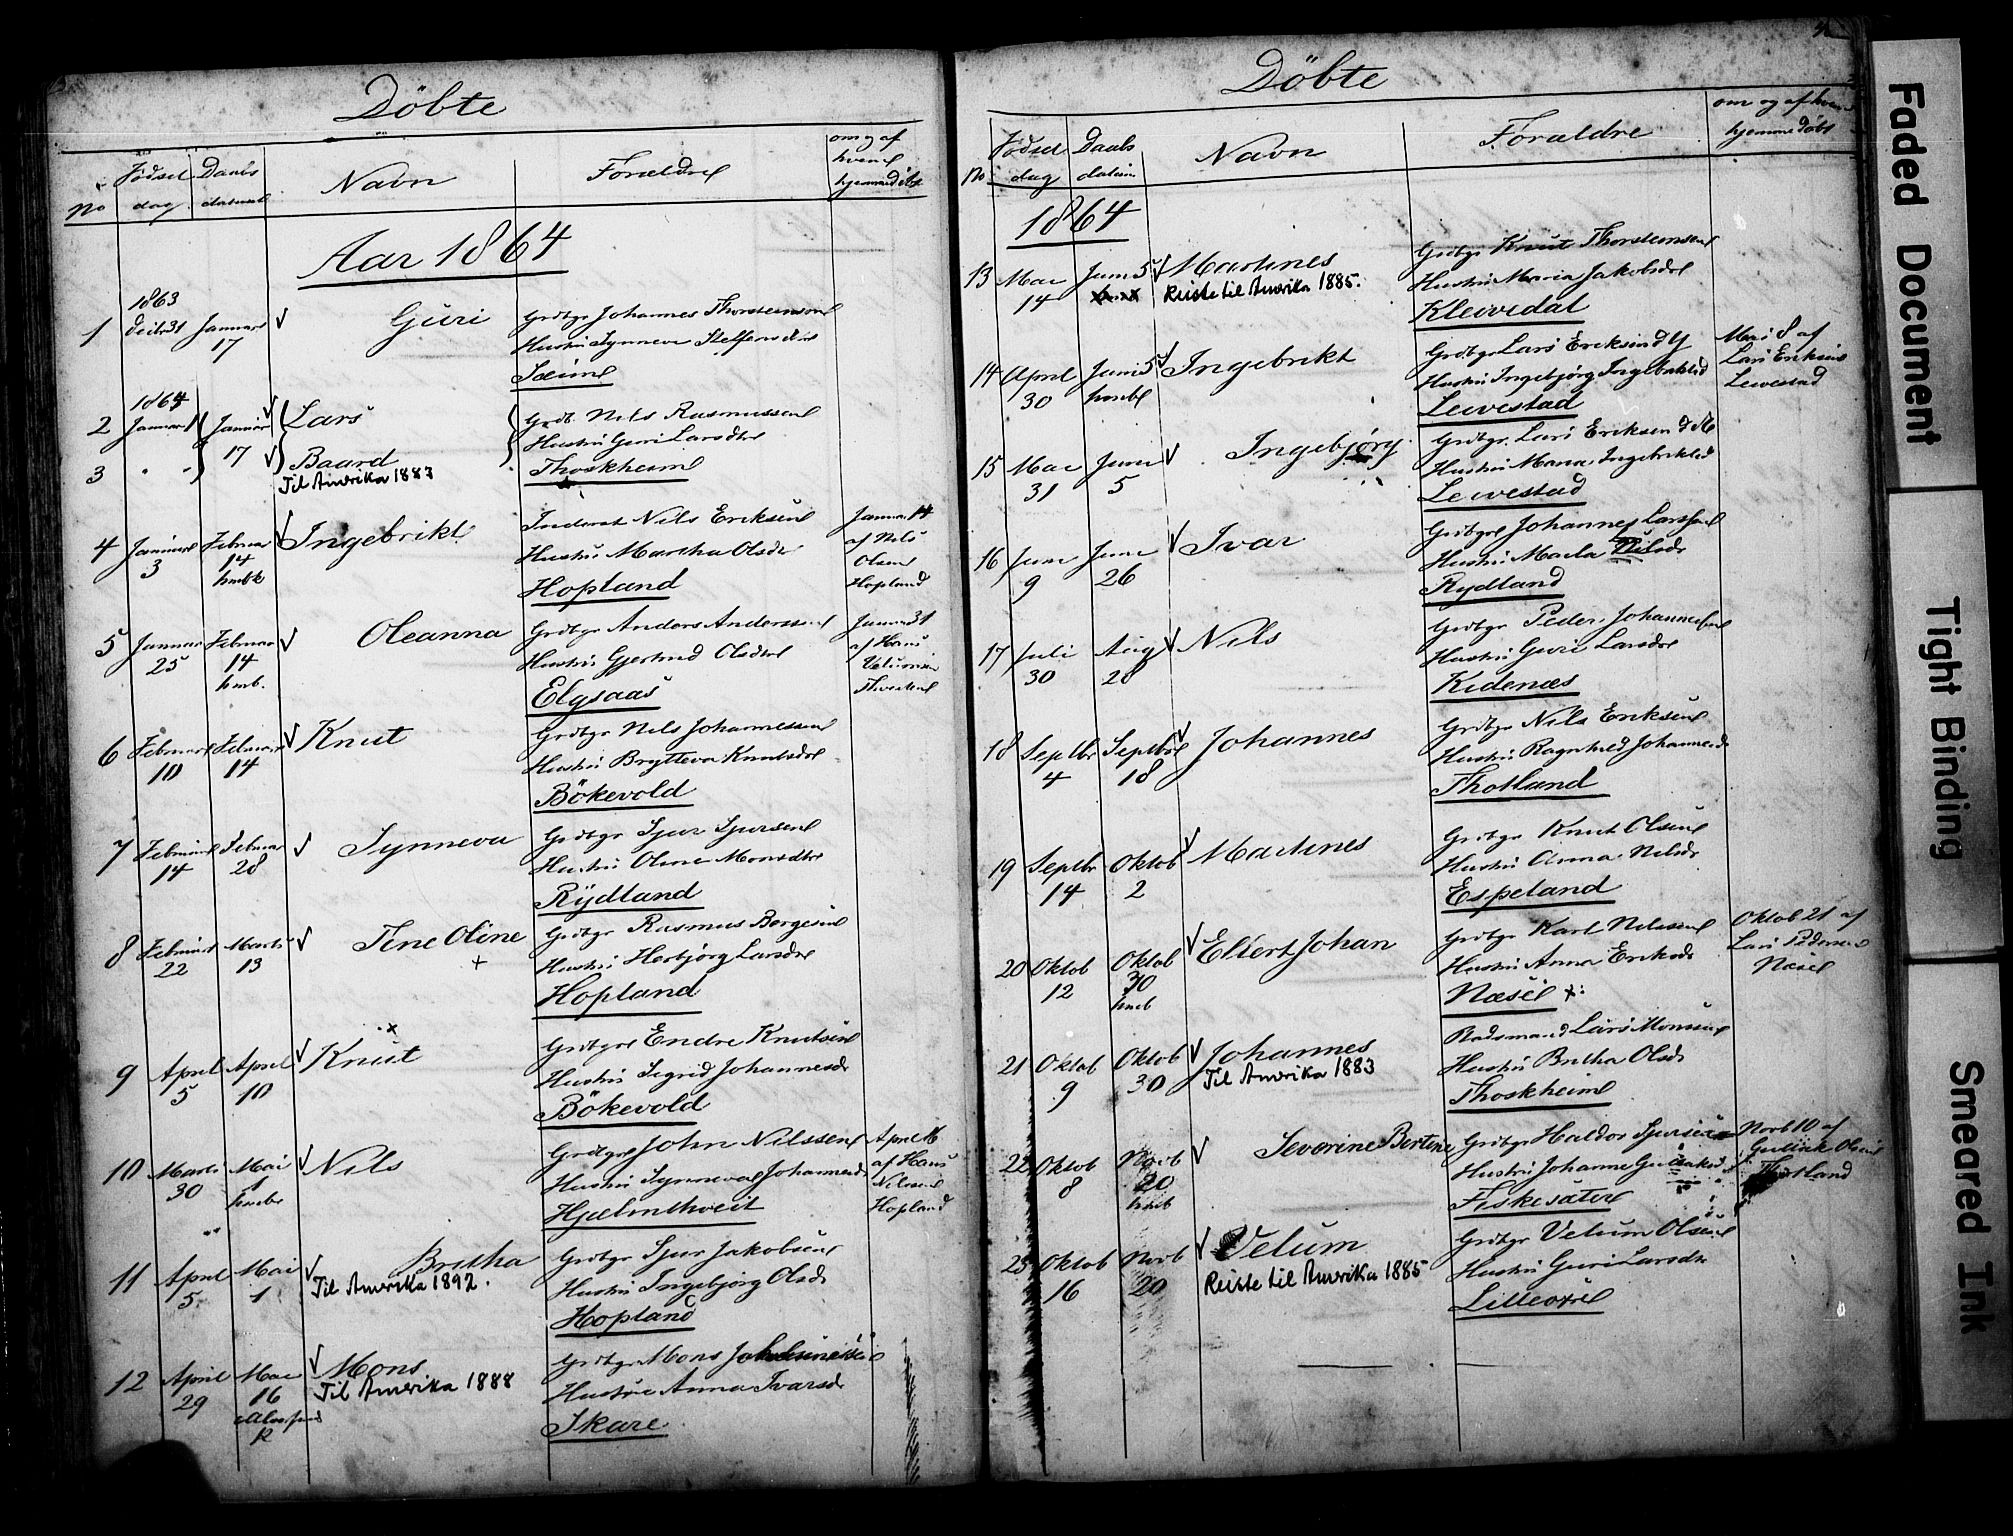 Döbte
No
Födsel dag
Daabs datum
Navn
Forældre
om og af hvem hjemmedöbt
Aar 1864
1863
1 Decbr 31 Januar 17 Guri Grdbgr Johannes Thorsteinsen
Hustru Synneva Steffensdtr
Sæim
1864
2 Januar 11 Januar 17 Lars Grdb. Nils Rasmussen
Hustru Guri Larsdtr
3 " " Baard Thoskheim
Til Amerika 1883
4 Januar 3 Februar 14 hmbk Ingebrikt Inderst Nils Eriksen
Hustru Martha Olsdr
Hopland
Januar 14 af Nils Olsen Hopland
5 Januar 25 Februar 14 hmb. Oleanna Grdbgr Anders Anderssen
Hustru Gjertrud Olsdtr
Elgsaas
Januar 31 af Hans
6 Februar 10 Februar 14 Knut Grdbgr Nils Johannessen
Hustru Brytteva Knutsdtr
Bökevold
7 Februar 14 Februar 28 Synneva Grdbgr Sjur Sjursen
Hustru Oline Monsdtr
Rydland
8 Februar 22 Marts 13 Tene Oline Grdbgr Rasmus Børgesen
Hustru Herbjørg Larsdtr
Hopland
9 April 5 April 10 Knut Grdbgr Endre Knutsen
Hustru Sigrid Johannesdr
Bökevold
10 Marts 30 Mai 1 hmbr Nils Grdbgr John Nilssen
Hustru Synneva Johannesdr
Hjelmthveit
April 16 af Hans Nilssen Hopland
11 April 5 Mai 1 Britha Grdbgr Sjur Jakobsen
Til Amerika 1892.
Hustru Ingebjørg Olsdr
Hopland
12 April 29 Mai 16 Mons Grdbgr Mons Johannessen
Til Amerika 1888
Hustru Anna Ivarsdr
Skare
Döbte
No
Födsel dag
Daabs datum
Navn
Forældre
om og af hvem hjemmedöbt
1864
13 Mai 14 Juni 5 Martines Grdbgr Knut Thorsteinsen
Reiste til Amerika 1885.
Hustru Maria Jakobsdtr
Kleivedal
14 April 30 Juni 5 hmbd Ingebrikt Grdbgr Lars Eriksen d Y
Hustru Ingebjørg Ingebriktsd
Leivestad
Mai 8 af Lars Eriksen Leivestad
15 Mai 31 Juni 5 Ingebjørg Grdbgr. Lars Eriksen d Æ
Hustru Maria Ingebriktsd
Leivestad
16 Juni 9 Juni 26 Ivar Grdbgr Johannes Larssen
Hustru Marta Nilsdr
Rydland
17 Juli 30 Aug 28 Nils Grdbgr Peder Johannessen
Hustru Guri Larsdtr
Kidenæs
18 Septbr 4 Septbr 18 Johannes Grdbgr Nils Eriksen
Hustru Ragnhild Johannesdr
Thotland
19 Septbr 14 Oktob 2 Martines Grdbgr Knut Olsen
Hustru Anna Nilsdr
Espeland
20 Oktob 12 Oktob 30 hmb Ellert Johan Grdbgr Karl Nilssen
Hustru Anna Eriksdr
Næse
Oktob 21 af Lars Pedersen Næse
21 Oktob 9 Oktob 30 Johannes Baadsmand Lars Monssen
Til Amerika 1883
Hustru Britha Olsdr
Thoskheim
22 Oktob 8 Novb 20 hmb Severine Bertine Grdbgr Haldor Sjursen
Hustru Johanne Gulliksdr
Fiskesæter
Novb 10 af Gullik Olsen
23 Oktob 16 Novb 20 Velum Grdbgr Velum Olsen
Reiste til Amerika 1885
Hustru Guri Larsdtr
Lilleoxel
Faded Document
Tight Binding
Smeared Ink